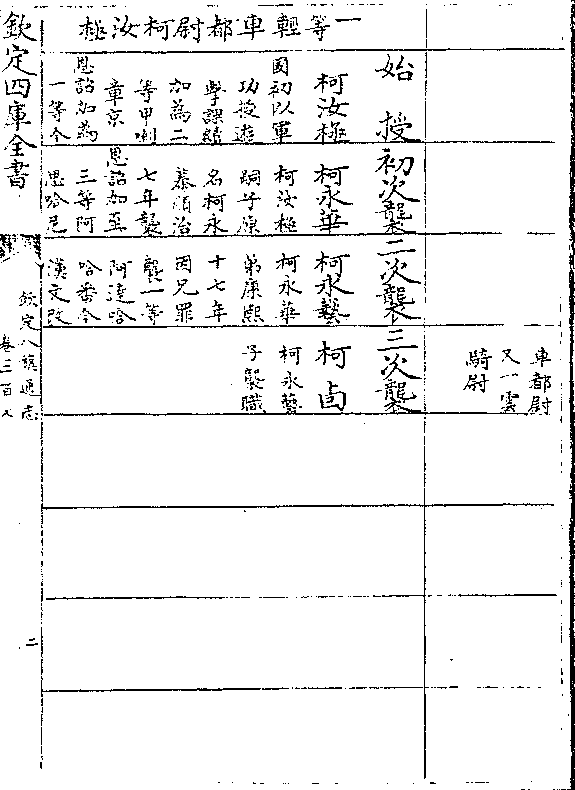 車都尉
又一雲
騎尉
一等輕車都尉柯汝極
始授
柯汝極
國初以軍
功授遊
擊課績
加為二
等甲喇
章京
恩詔加為
一等今
初次襲
柯永華
柯汝極
嗣子原
名柯永
蓁順治
七年襲
恩詔加至
三等阿
思哈尼
二次襲
柯永藝
柯永華
弟康熙
十七年
因兄罪
襲一等
阿達哈
哈番今
漢文改
三次襲
柯卣
柯永藝
子襲職
欽定四庫全書
欽定八旗通志
卷三百
二